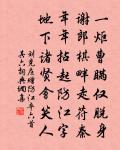 一炬曹瞞仅脱身
谢郎棋畔走苻秦
年年拈起防江字
地下诸贤会笑人
刘克庄赠防江卒六首
其六词典网集